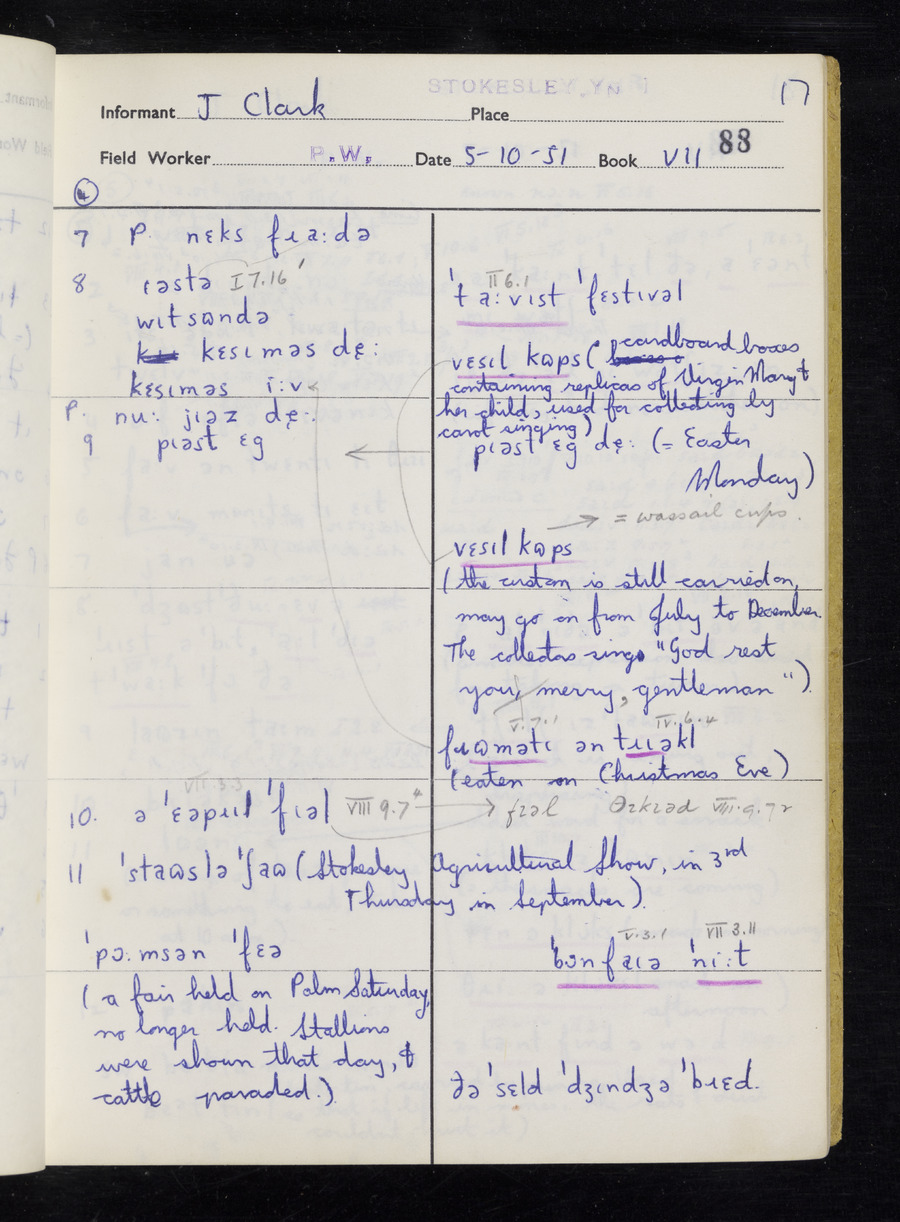 STOKESLEY, YN
17
Informant J Clark Place
88
Field Worker P.W. Date 5-10-51 Book VII
4
7 P. nɛks fɹaːdə
8 ɹastə I 7.16
witsɷndə
kɛsɪməs dẹː
kɛsɪməs iːv
P. nuː jɪəz dẹː
9 pɪəst ɛg
II 6.1
ˈtaːvɪst ˈfɛstɪvəl
vɛsɪl kɷps (cardboard boxes
containing replicas of Virgin Mary &
her child, used for collecting by
carol singing)
pɪəst ɛg dẹː (= Easter
Monday)
→ = wassail cups.
vɛsɪl kɷps
(the custom is still carried on,
may go on from July to December.
The collectors sing "God rest
you, merry, gentleman").
V.7.1 IV.6.4
fɹɷmətɪ ən tɹɪəkl
(eaten on Christmas Eve)
VII.3.3
10. ə ˈɛəpɹɪl ˈfɪəl VIII 9.7 → fɪəl θɜkɪəd VIII.9.7r
11 ˈstaɷslə ˈʃaɷ (Stokesley Agricultural Show, in 3rd
Thursday in September).
ˈpɔːmsən ˈfɛə
(a fair held on Palm Saturday,
no longer held. Stallions
were shown that day, &
cattle paraded.)
V.3.1 VII 3.11
ˈbɔnfaɪə ˈniːt
ðə ˈsɛld ˈdʒɪndʒə ˈbɹɛd.